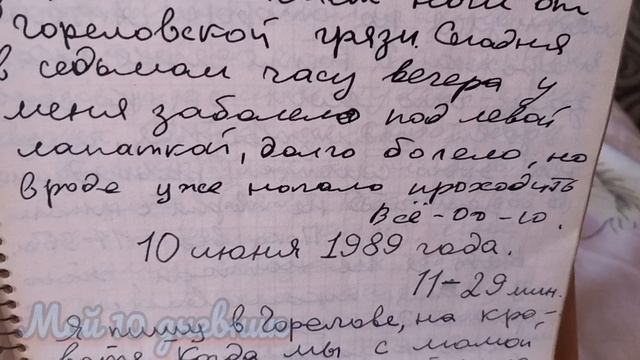 ног от
Гореловской грязи. Сегодня
в седьмом часу вечера у
меня заболело под левой
лопаткой, долго болело, но
вроде уже начало проходить
Всё-оо-ю.
10 июня 1989 года.
11-29 мин.
Я пишу в Горелове, на кро-
вати. Когда мы с мамой
Мой 10 дневник